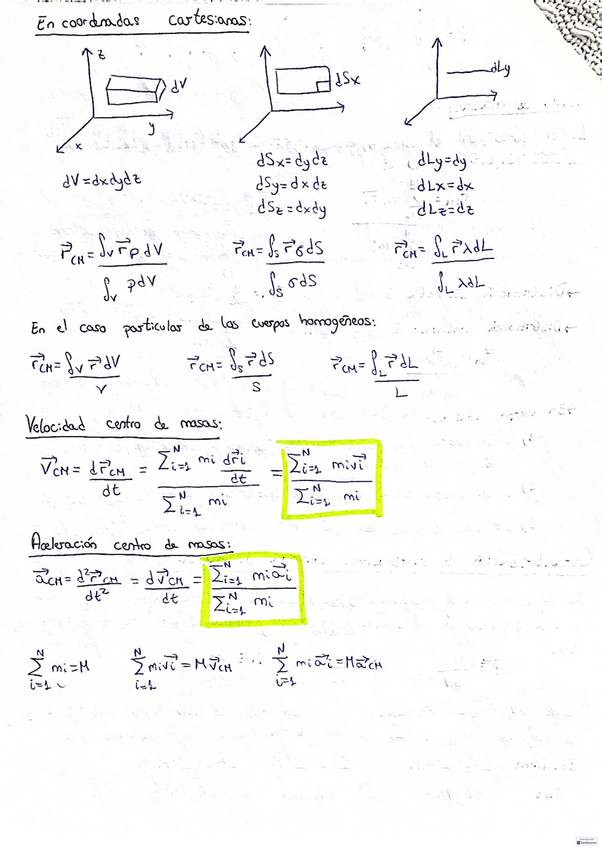 En coordnadas cartesianas:
z
dV
y
x
dSx
dLy
dV = dxdydz
dSx = dydz
dSy = dxdz
dSz = dxdy
dLy = dy
dLx = dx
dLz = dz
r⃗CM = ∫V r⃗ρdV / ∫V ρdV
r⃗CM = ∫S r⃗σdS / ∫S σdS
r⃗CM = ∫L r⃗λdL / ∫L λdL
En el caso particular de los cuerpos homogéneos:
r⃗CM = ∫V r⃗dV / V
r⃗CM = ∫S r⃗dS / S
r⃗CM = ∫L r⃗dL / L
Velocidad centro de masas:
V⃗CM = dr⃗CM/dt = Σᵢ₌₁ᴺ mi dr⃗i/dt / Σᵢ₌₁ᴺ mi = Σᵢ₌₁ᴺ miv⃗i / Σᵢ₌₁ᴺ mi
Aceleración centro de masas:
a⃗CM = d²r⃗CM/dt² = dv⃗CM/dt = Σᵢ₌₁ᴺ mia⃗i / Σᵢ₌₁ᴺ mi
Σᵢ₌₁ᴺ mi = M
Σᵢ₌₁ᴺ miv⃗i = Mv⃗CM
Σᵢ₌₁ᴺ mia⃗i = Ma⃗CM